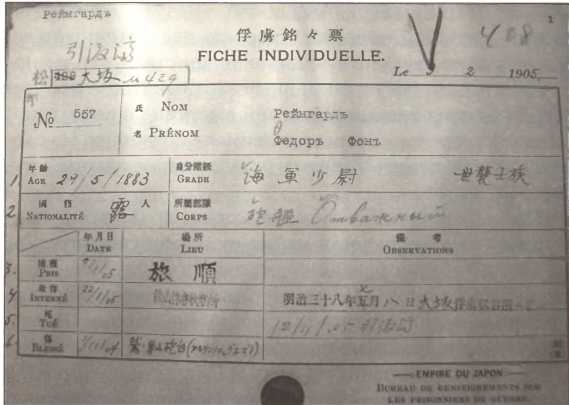 Рейнгардъ
1
引渡済
俘虜銘々票
408
FICHE INDIVIDUELLE.
松 大坂 424
Le 3 2 1905.
No 557
氏 NOM
Рейнгардъ
名 PRÉNOM
Федоръ Фонъ
1. 年齢 AGE 29/5/1883
身分階級 GRADE 海軍少尉 世襲士族
2. 国籍 NATIONALITÉ 露人
所属部隊 CORPS 砲艦
年月日 場所 備考
DATE LIEU OBSERVATIONS
3. 捕獲 PRIS 旅順
4 INTERNÉ 22/1/05 明治三十八年五月八日大坂
5. 死 TUÉ 引渡済
6. 傷 BLESSÉ 砲台
EMPIRE DU JAPON
BUREAU DE RENSEIGNEMENTS SUR
LES PRISONNIERS DE GUERRE.